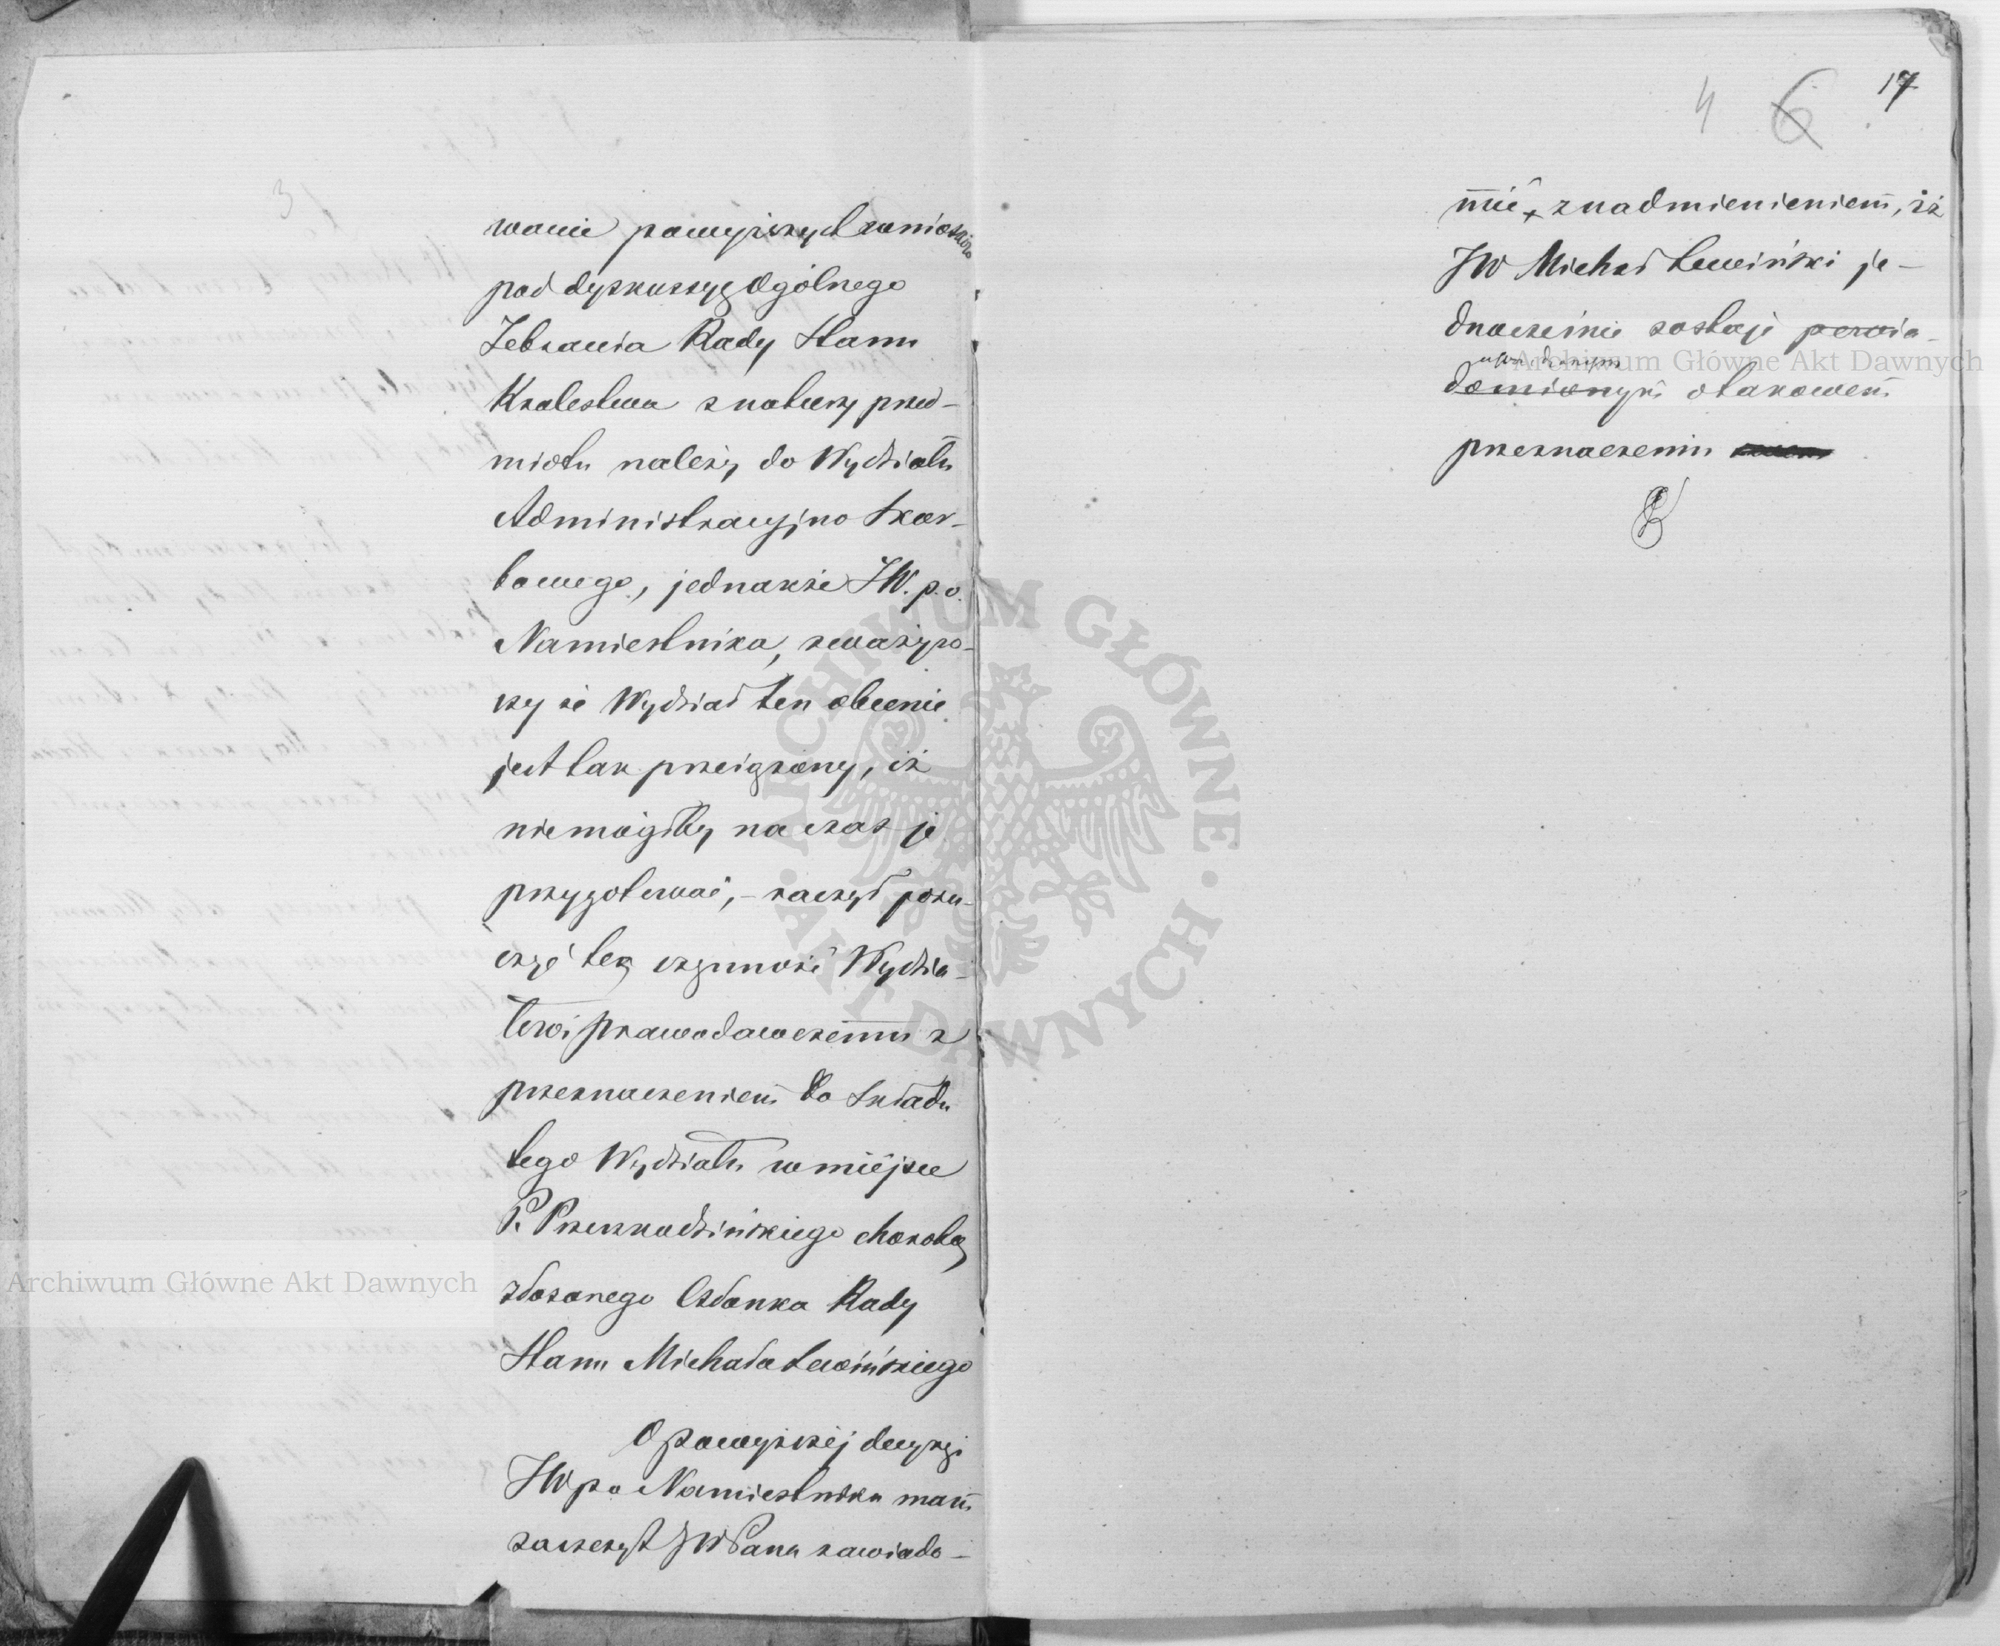 3
wanie powyższych wniosków
pod dyskussyą Ogólnego
Zebrania Rady Stanu
Królestwa z natury przed-
miotu należy do Wydziału
Administracyjno Skar-
bowego, jednakże JW. p.o.
Namiestnika, zważyw-
szy że Wydział ten obecnie
jest tak przeciążony, iż
niemógłby na czas je
przygotować, – raczył poru-
czyć tę czynność Wydzia-
łowi prawodawczemu z
przeznaczeniem do Składu
tego Wydziału w miejsce
P. chorobą
złożonego Członka Rady
Stanu Michała Lewińskiego
O powyższej decyzyi
JW po Namiestnika mam
zaszczyt JWPana zawiado-
4 6 17
mić, z nadmienieniem, iż
JW Michał Lewiński je-
dnocześnie zostaje powia-
domionym o takowem
przeznaczeniu
Archiwum Główne Akt Dawnych
Archiwum Główne Akt Dawnych
ARCHIWUM GŁÓWNE · AKT DAWNYCH ·